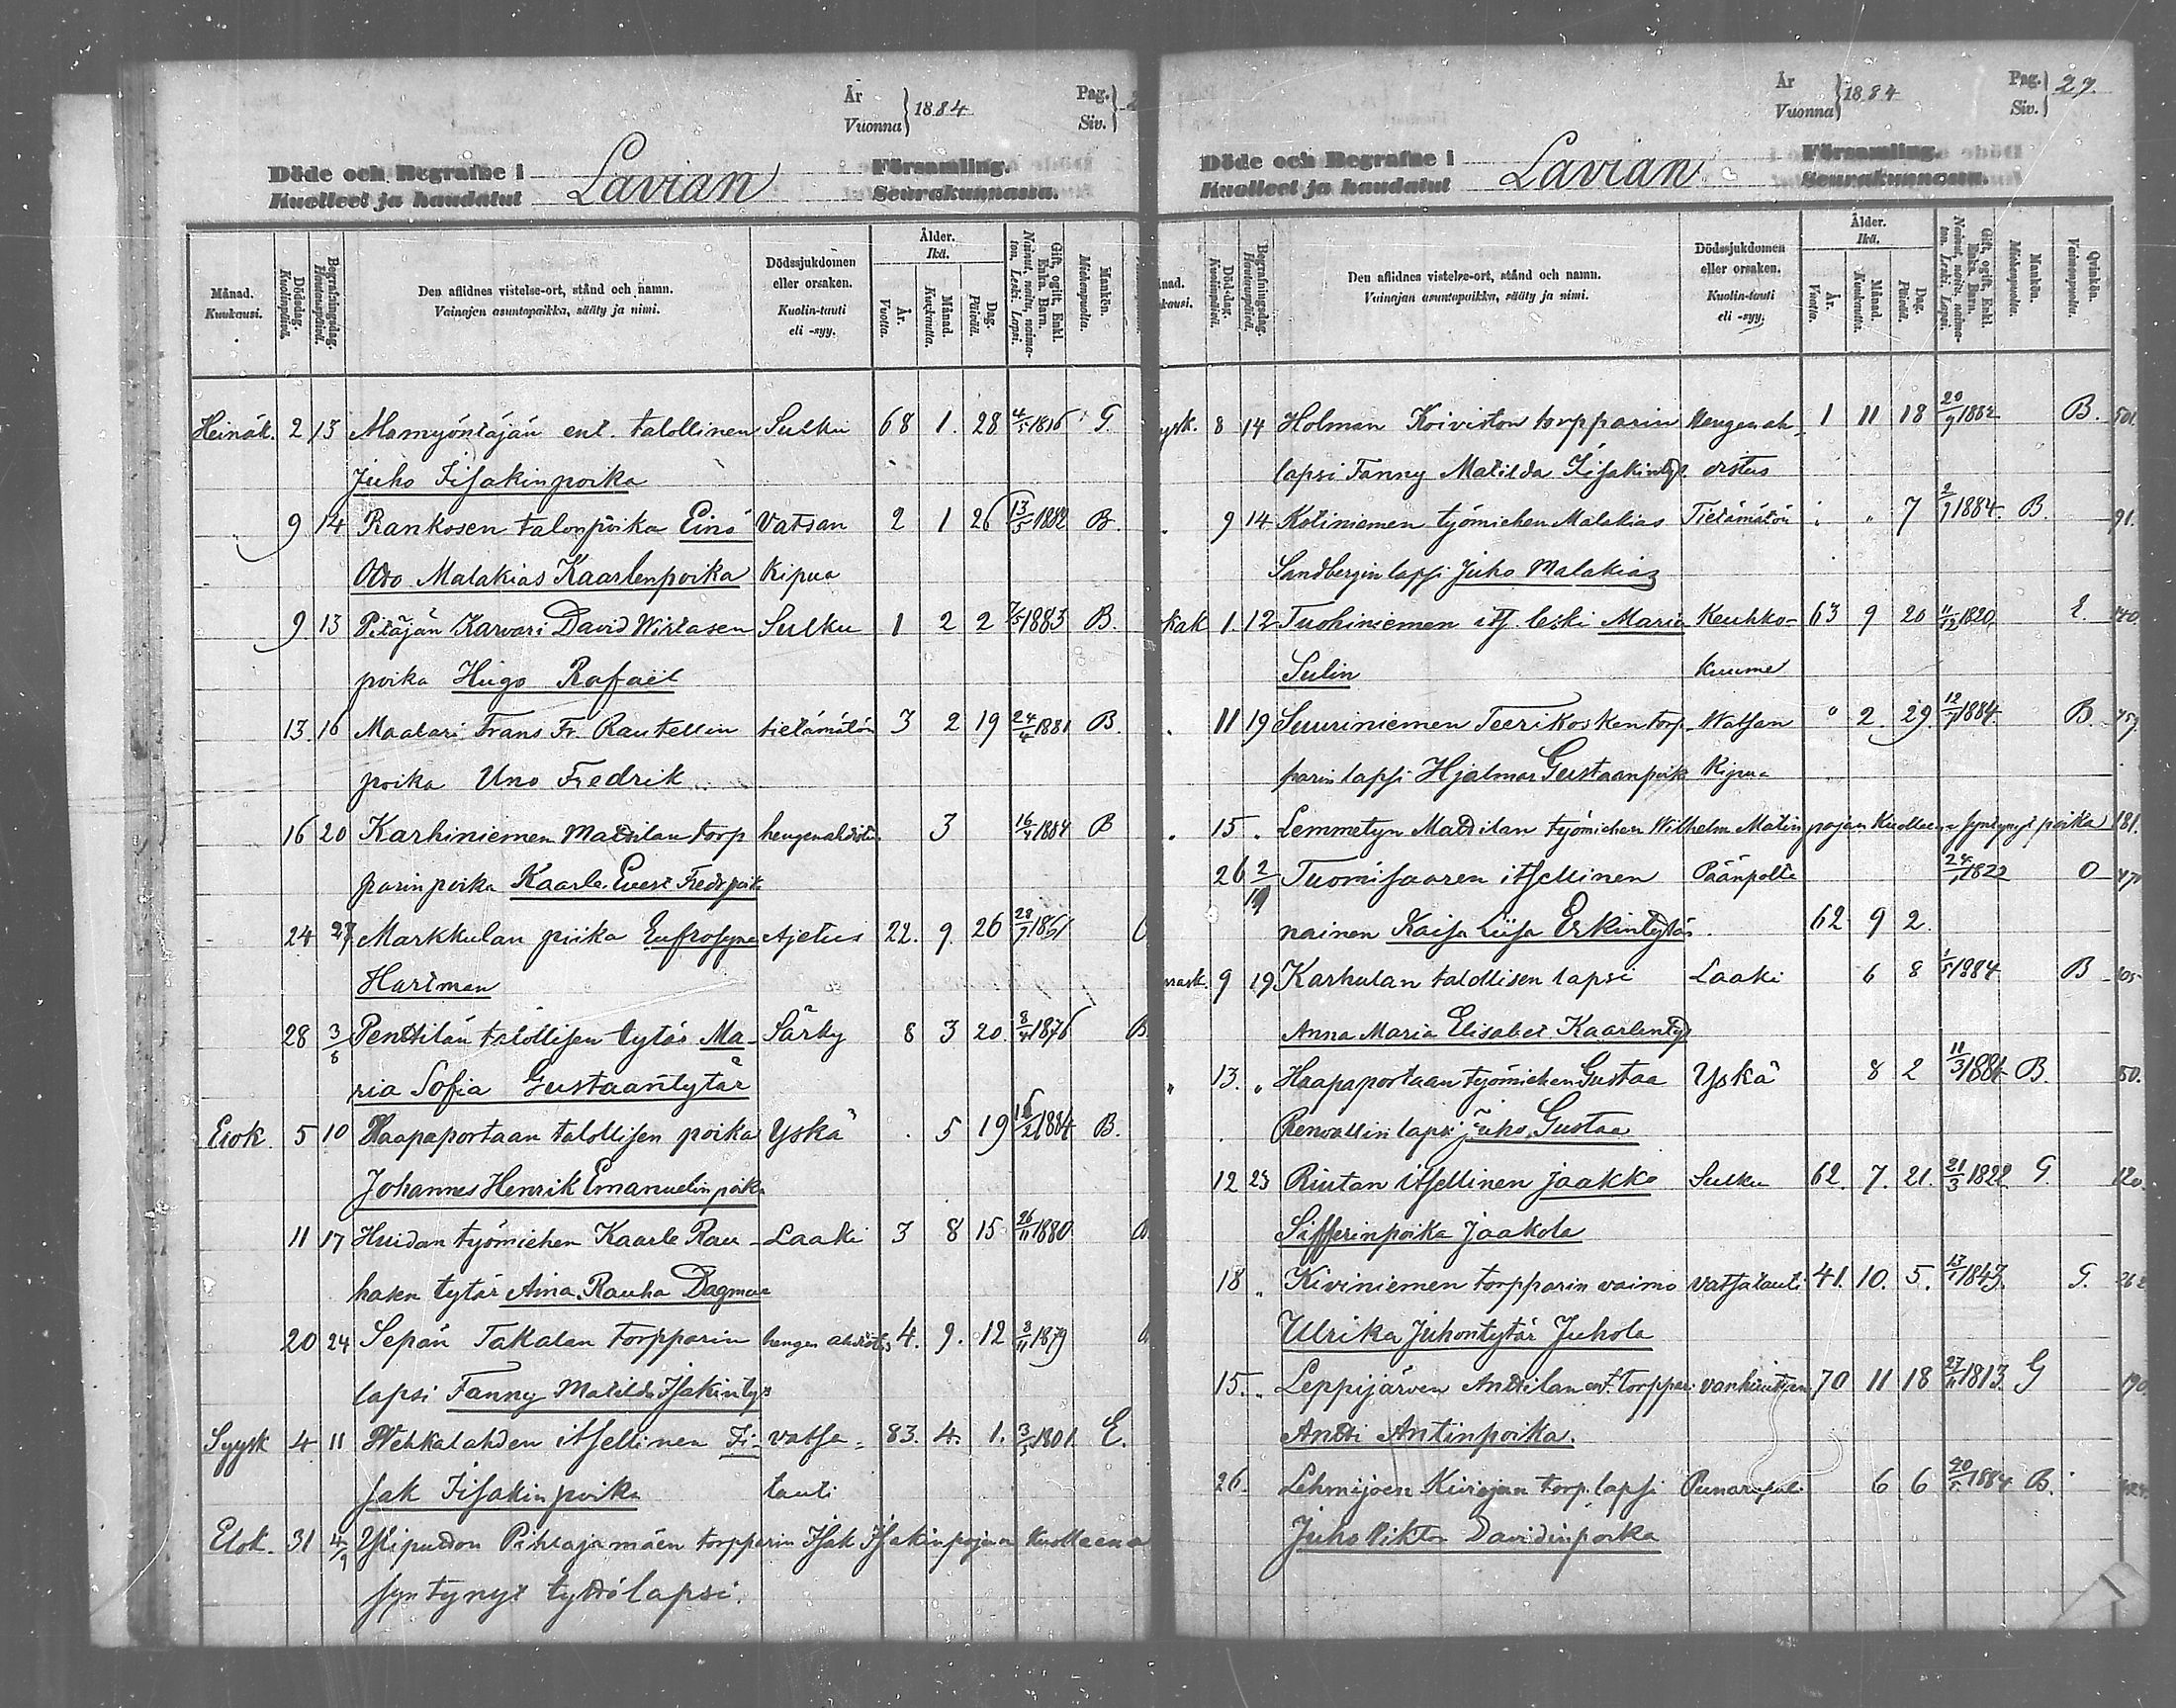 År
Vuonna } 1884
Pag.
Siv. }
Döde och Begrafne i Lavian Församling.
Kuolleet ja haudatut Seurakunnassa.
Månad. Kuukausi.
Dödsdag. Kuolinpäivä.
Begrafningsdag. Hautauspäivä.
Den aflidnes vistelse-ort, stånd och namn.
Vainajan asuntopaikka, sääty ja nimi.
Dödssjukdomen eller orsaken.
Kuolin-tauti eli -syy.
Ålder. Ikä.
År. Vuotta.
Månad. Kuukautta.
Dag. Päivää.
Gift, ogift, Enkl. Enka. Barn.
Nainut, naitu, naimaton. Leski. Lapsi.
Mankön. Miehenpuolta.
Heinäk. 2 13 Mamyöntäjän ent. talollinen Sulku 68 1. 28 4/5 1816 G.
Juho Iisakinpoika
9 14 Rankosen talonpoika Einö Vatsan 2 1 26 13/5 1882 B.
Otto Malakias Kaarlenpoika kipua
9 13 Pitäjän Karvari David Wirtasen Sulku 1 2 2 7/5 1883 B.
poika Hugo Rafaël
13. 16 Maalari Frans Fr. Rautellin tietämätön 3 2 19 24/4 1881 B.
poika Uno Fredrik
16 20 Karhiniemen Mattilan torp hengenahdistus 3 16/4 1884 B
parin poika Kaarle Evert Fredr.poika
24 27 Markkulan piika Eufrosyne Ajetus 22. 9. 26 28/9 1861
Hartman
28 3/8 Penttilän talollisen tytär Ma- Särky 8 3 20. 8/4 1876 B
ria Sofia Gustaantytär
Elok. 5 10 Haapaportaan talollisen poika Yskä 5 19 16/2 1884 B.
Johannes Henrik Emanuelin poika
11 17 Huidan työmiehen Kaarle Rau- Laaki 3 8 15 26/11 1880
hasen tytär Aina Rauha Dagmar
20 24 Sepän Takalan torpparin hengen ahdistus 4. 9. 12 8/11 1879
lapsi Fanny Matilda Isakintyt.
Syysk 4 11 Wehkalahden itsellinen Ii- vatsa- 83. 4. 1. 3/5 1801. E.
sak Iisakinpoika tauti
Elok. 31 4/9 Ylipuidon Pihlajamäen torpparin Isak Isakinpojan kuolleena
syntynyt tyttö lapsi.
År
Vuonna } 1884
Pag.
Siv. } 27.
Döde och Begrafne i Lavian Församling.
Kuolleet ja haudatut Seurakunnassa.
Dödsdag. Kuolinpäivä.
Begrafningsdag. Hautauspäivä.
Den aflidnes vistelse-ort, stånd och namn.
Vainajan asuntopaikka, sääty ja nimi.
Dödssjukdomen eller orsaken.
Kuolin-tauti eli -syy.
Ålder. Ikä.
År. Vuotta.
Månad. Kuukautta.
Dag. Päivää.
Gift, ogift, Enkl. Enka. Barn.
Nainut, naitu, naimaton. Leski. Lapsi.
Mankön. Miehenpuolta.
Qvinkön. Vaimonpuolta.
ysk. 8 14 Holman Koiviston torpparin Hengenah- 1 11 18 20/9 1882 B. 501.
lapsi Fanny Matilda Iisakintyt. distus
9 14. Kotiniemen työmiehen Malakias Tietämätön 7 2/9 1884. B. 91.
Sandbergin lapsi Juho Malakias
okak 1. 12 Tuohiniemen its. leski Maria Keuhko- 63 9 20 11/12 1820 E. 140.
Sulin kuume
11 19 Suuriniemen Teerikosken torp- Watsan 2. 29. 12/7 1884. B.
parin lapsi Hjalmar Gustaanpoik. Kipua
15 Lemmetyn Mattilan työmiehen Wilhelm Matinpojan kuolleena syntynyt poika 181.
26 2/19 Tuomisaaren itsellinen Päänpolte 24/1 1822 O
nainen Kaisa Liisa Erkintytär 62 9 2
mask. 9 19 Karhulan talollisen lapsi Laaki 6 8 1/5 1884 B
Anna Maria Elisabet Kaarlentyt.
13. Haapaportaan työmiehen Gustaa Yskä 8 2 11/3 1884 B. 50.
Renvallin lapsi Juho Gustaa
12 23 Riutan itsellinen Jaakko Sulku 62. 7. 21. 21/3 1822 G. 120.
Sifferinpoika Jaakola
18 Kiviniemen torpparin vaimo vatsatauti 41. 10. 5. 13/1 1843. G.
Ulrika Juhontytär Juhola
15. Leppijärven Anttilan ent. torppari vanhuuttan 70 11 18 27/11 1813. G
Antti Antinpoika.
26. Lehmijoen Kivojan torp. lapsi Punarupuli 6 6 20/5 1884 B.
Juho Viktor Davidinpoika